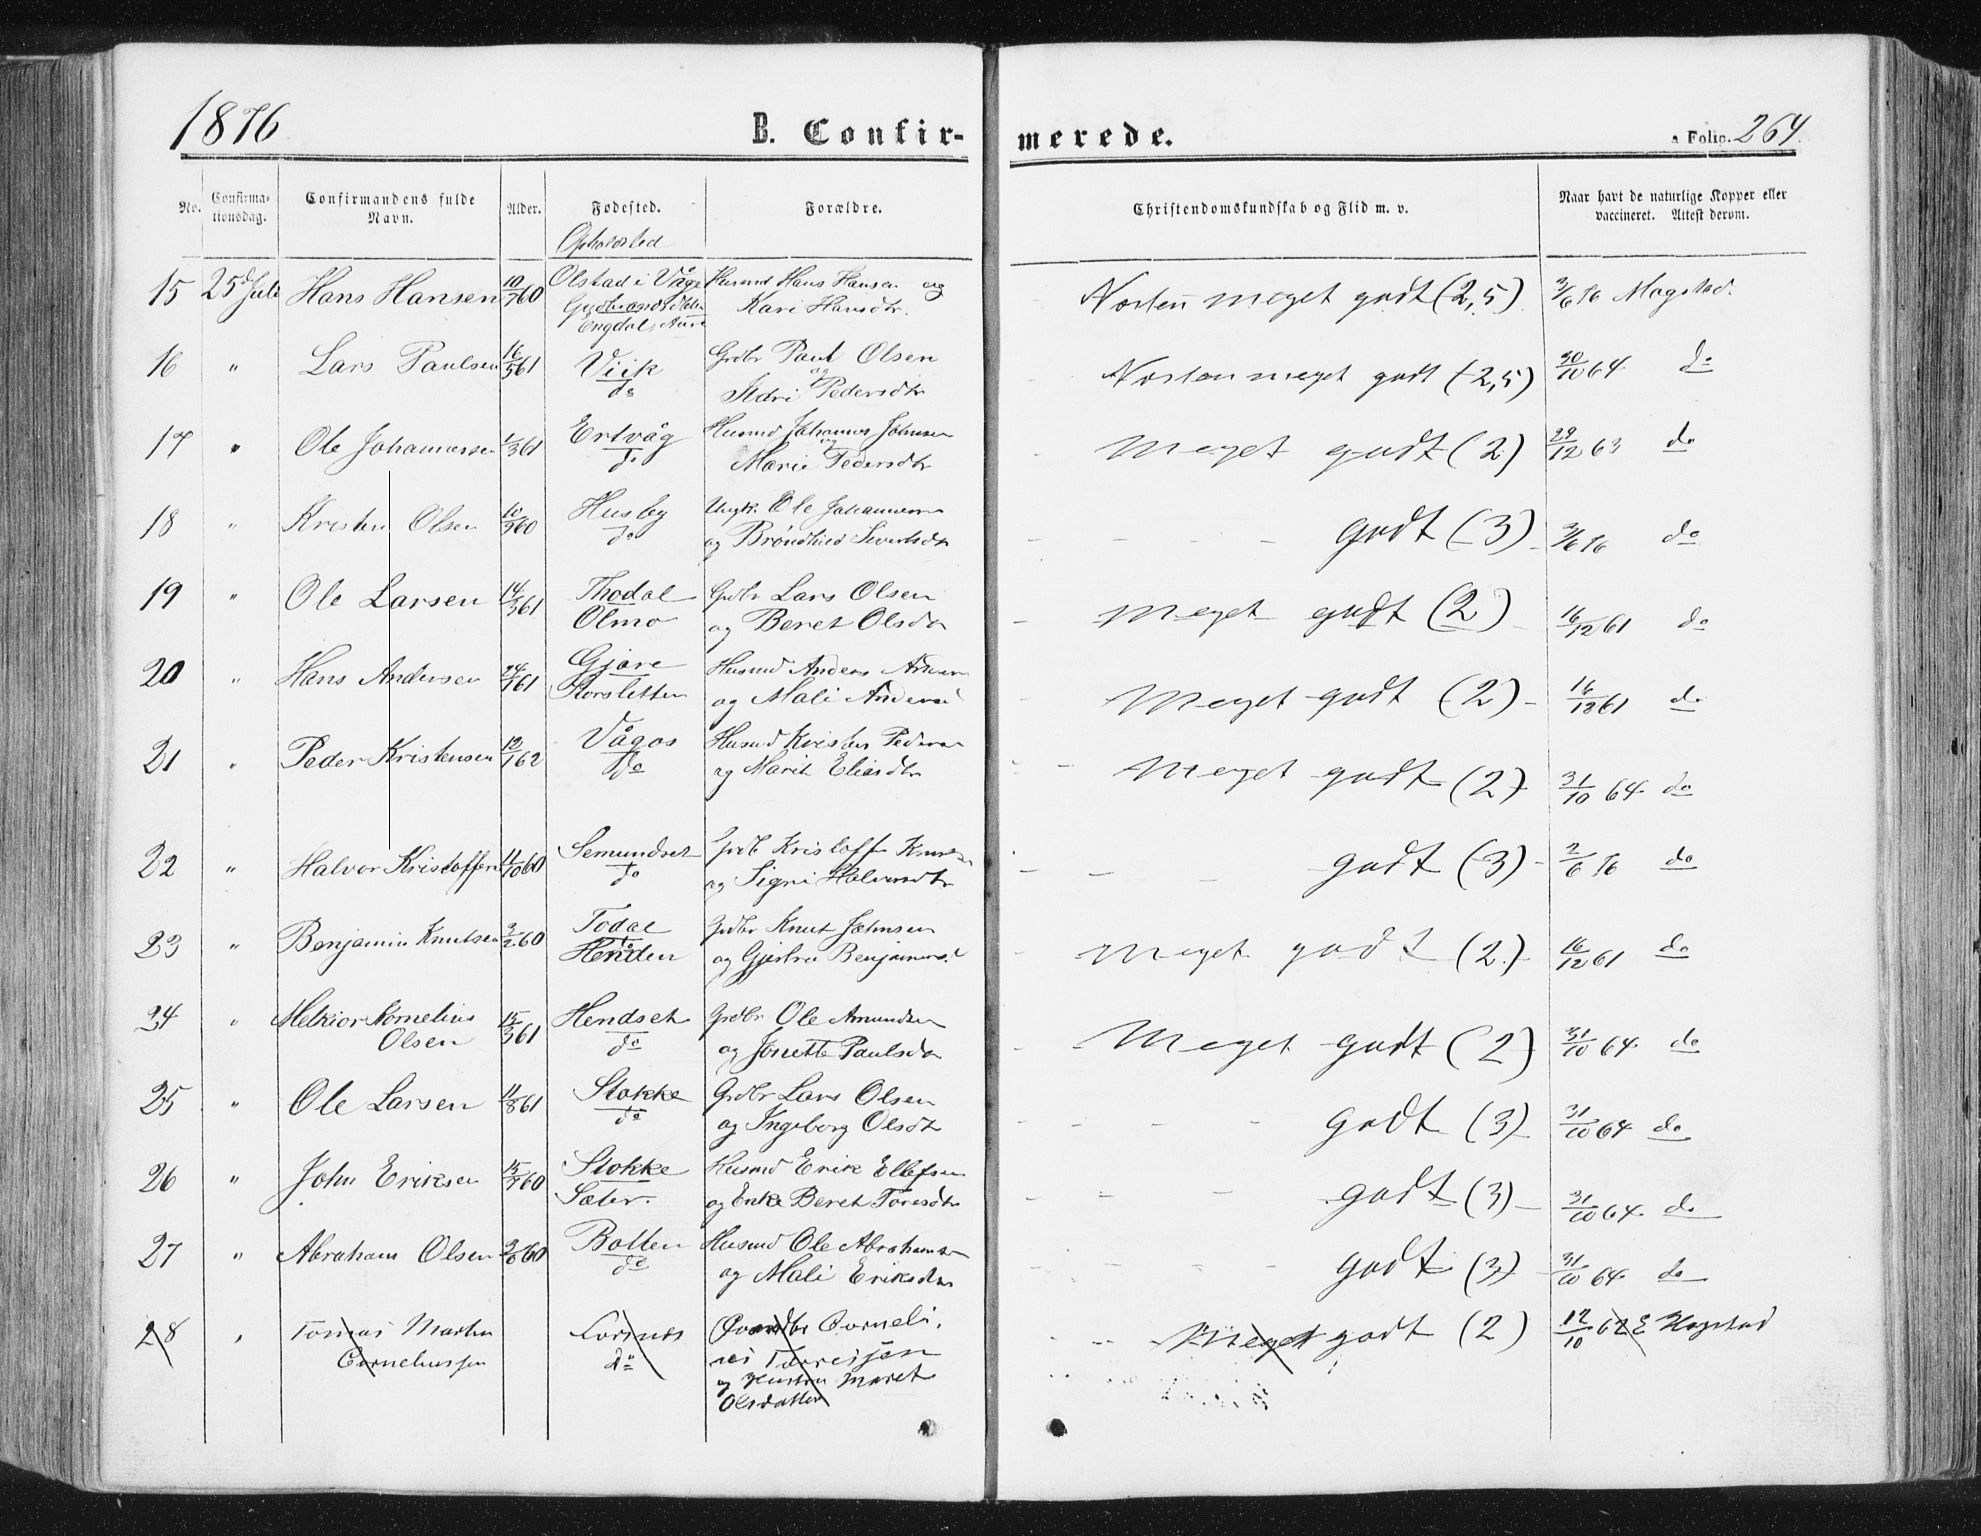 1876
B. Confir-
merede.
Folio. 264.
No.
Confirma-
tionsdag.
Confirmandens fulde
Navn.
Alder.
Fødested.
Forældre.
Christendomskundskab og Flid m. v.
Naar havt de naturlige Kopper eller
vaccineret. Attest derom.
Opholdsted
15 25d Juli Hans Hansen 10/7 60 Olstad i Våge Husmd Hans Hansen og Næsten meget godt (2,5) 3/6 76 Magstad.
Kari Hansdtr.
Engdal, Aure
16 " Lars Paulsen 16/5 61 Viik Grdbr Paul Olsen Næsten meget godt (2,5) 30/10 64 do
do og
Pedersdtr
17 " Ole Johannessen 1/3 61 Ertvåg Husmd Johannes Johnsen Meget godt (2) 29/12 63 do
do og Marie Pedersdtr
18 " Kristen Olsen 10/9 60 Husby Ungk. Ole Johannesen godt (3) 3/6 76 do
do og Brønhild Sivertsdtr
19 " Ole Larsen 14/3 61 Thodal Grdbr Lars Olsen meget godt (2) 16/12 61 do
Olmo og Beret Olsdr
20 " Hans Andersen 24/1 61 Gjøre Husmd Anders meget godt (2) 16/12 61 do
Korsletten og Mali Andersd
21 " Peder Kristensen 12/1 62 Vågos Husmd Kristen Pedersen Meget godt (2) 31/10 64 do
do og Marit Eliasdtr
22 " Halvor Kristoffers 11/10 60 Semundset Grdb Kristoffer Knuts godt (3) 2/6 76 do
do og Signi Halvorsdtr
23 " Benjamin Knutsen 3/2 60 Todal Grdbr Knut Johnsen Meget godt (2) 16/12 61 do
Henden og Gjertru Benjaminsd.
24 " Melkior Kornelius 15/3 61 Hendset Grdbr Ole Amundsen Meget godt (2) 31/10 64 do
Olsen do og Jonette Paulsdr
25 " Ole Larsen 11/8 61 Stokke Grdbr Lars Olsen godt (3) 31/10 64 do
do og Ingeborg Olsdtr
26 " John Eriksen 15/9 60 Stokke Husmd Erik Ellefsen godt (3) 31/10 64 do
Sæter. og Enke Beret Toresdtr
27 " Abraham Olsen 9/8 60 Botten Husmd Ole Abrahamsen godt (3) 31/10 64 do
do og Mali Eriksdtr
28 " Tomas Martin Lornes Corneli, Meget godt (2) 12/10 62 E Magstad
Corneliussen do us Torresjen
og Hustru Maret
Olsdatter